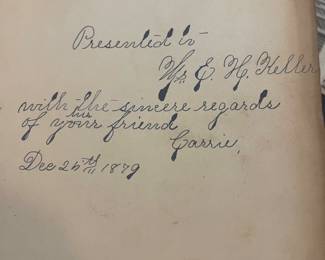 Presented to
Mr E. H. Keller
with the sincere regards
of your his friend
Carrie,
Dec 25th 1879